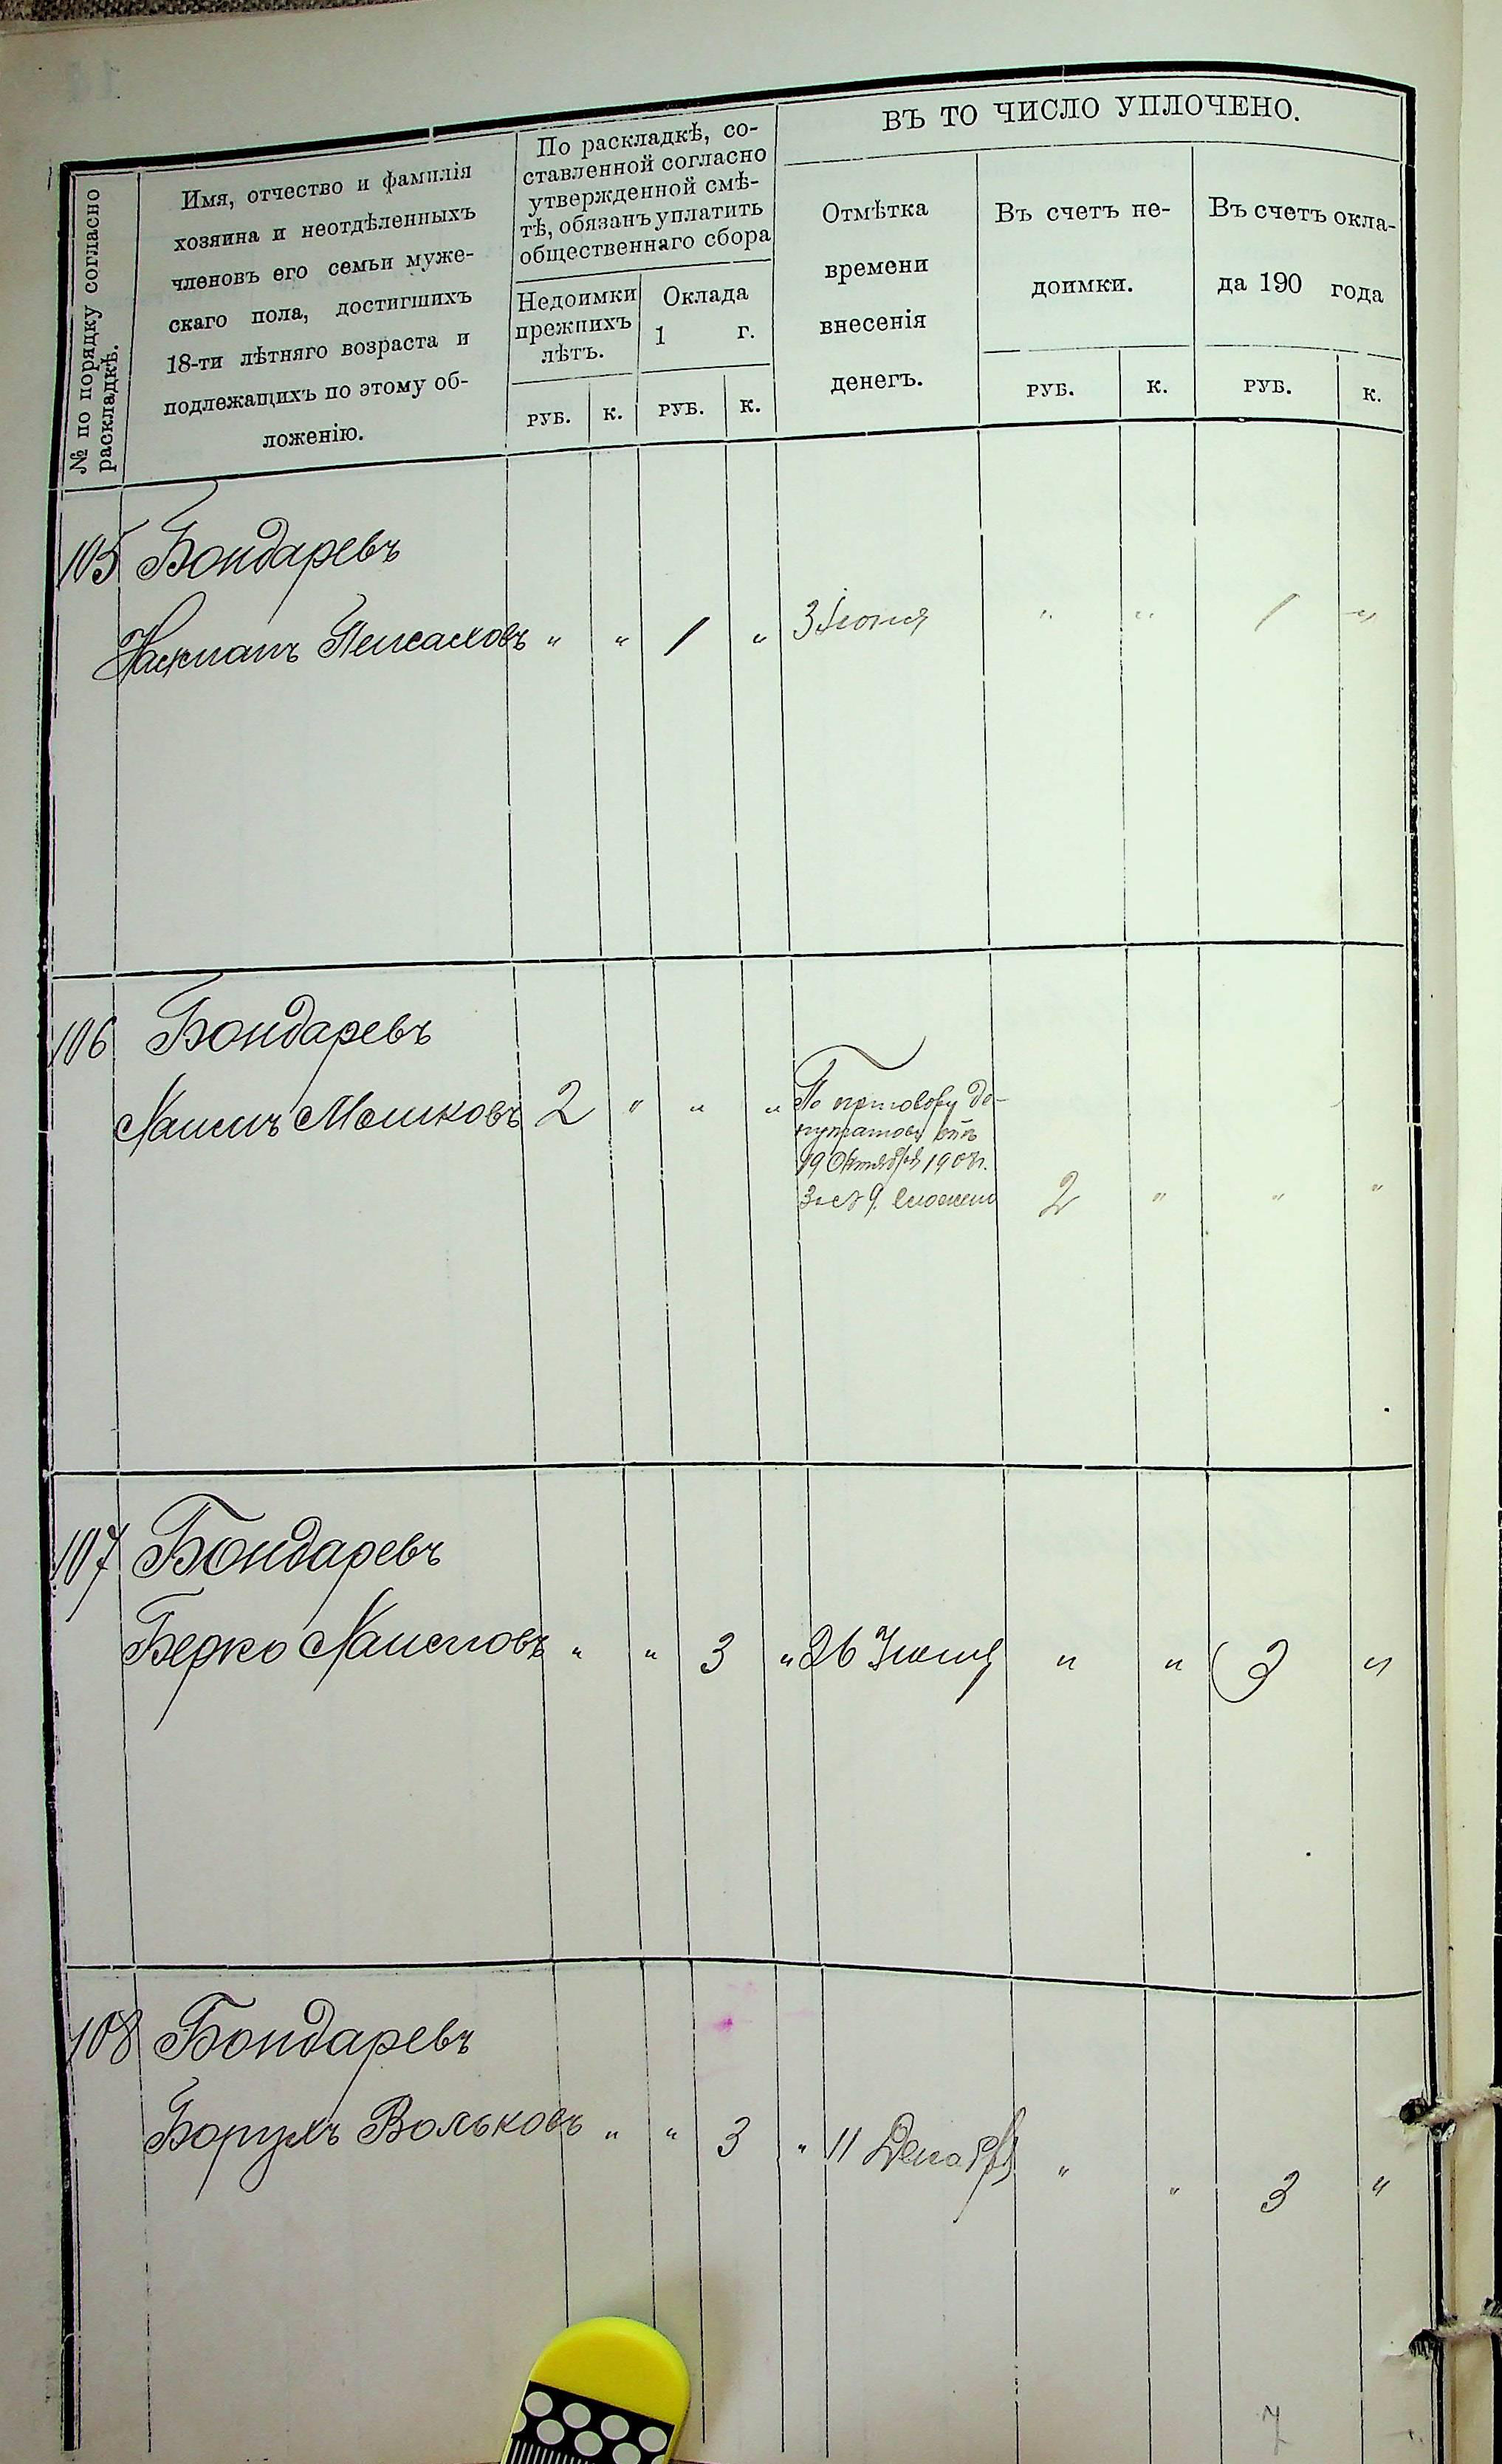 № по порядку согласно
раскладкѣ.
Имя, отчество и фамилія
хозяина и неотдѣленныхъ
членовъ его семьи муже-
скаго пола, достигшихъ
18-ти лѣтняго возраста и
подлежащихъ по этому об-
ложенію.
По раскладкѣ, со-
ставленной согласно
утвержденной смѣ-
тѣ, обязанъ уплатить
общественнаго сбора
Недоимки
прежнихъ
лѣтъ.
Оклада
1 г.
РУБ. К. РУБ. К.
ВЪ ТО ЧИСЛО УПЛОЧЕНО.
Отмѣтка
времени
внесенія
денегъ.
Въ счетъ не-
доимки.
РУБ. К.
Въ счетъ окла-
да 190 года
РУБ. К.
105 Бондаревъ
Нахманъ Пейсаховъ " " 1 " 3 Іюня " " 1 "
106 Бондаревъ
Хаимъ Мошковъ 2 " " "
По приговору де-
путатовъ отъ
19 Октября 1907г.
за № 9. сложено 2 " " "
107 Бондаревъ
Берко Хаимовъ " " 3 " 26 Іюня " " 3 "
108 Бондаревъ
Борухъ Вольковъ " " 3 " 11 Декабря " " 3 "
7